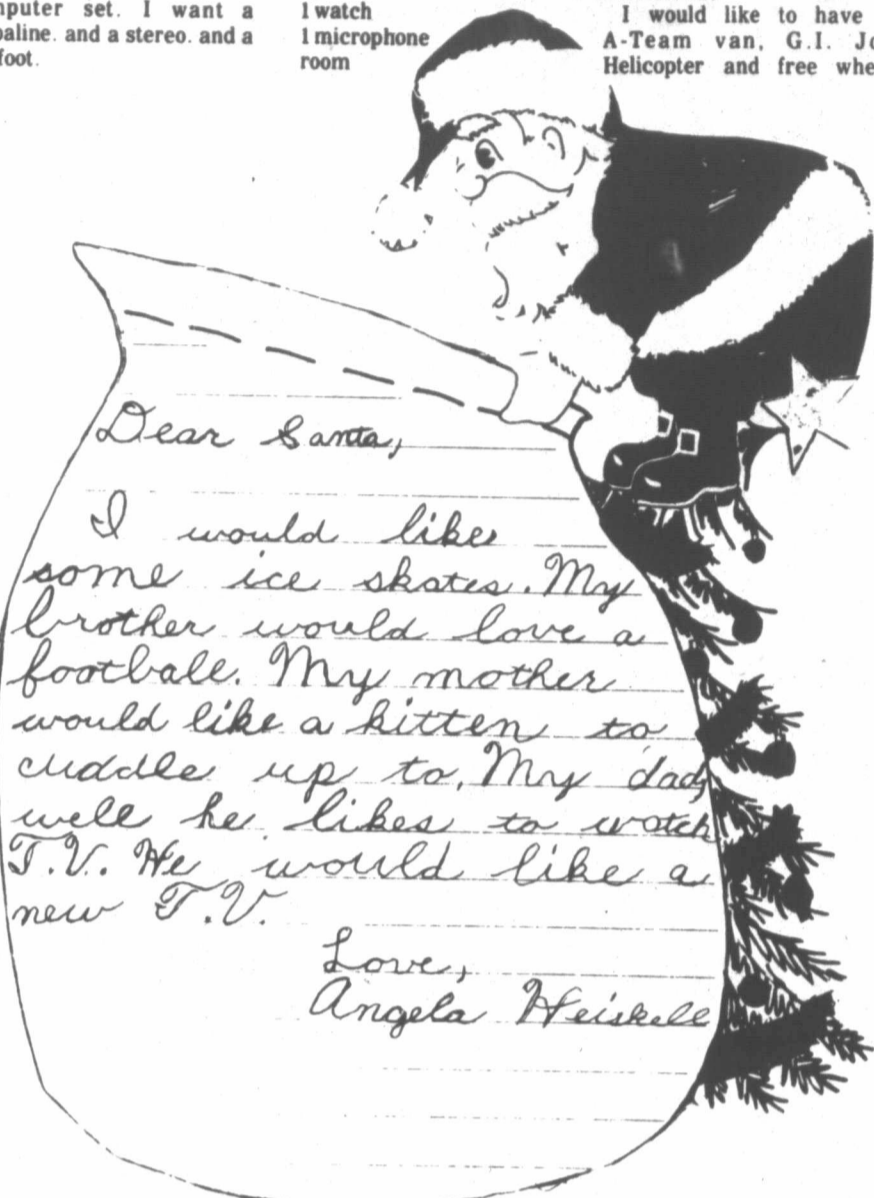 nputer set. I want a
baline. and a stereo. and a
foot.
1 watch
1 microphone
room
I would like to have
A-Team van, G.I. Jo
Helicopter and free whe
Dear Santa,
I would like
some ice skates. My
brother would love a
football. My mother
would like a kitten to
cuddle up to. My dad,
well he likes to watch
T.V. He would like a
new T.V.
Love,
Angela Heiskell